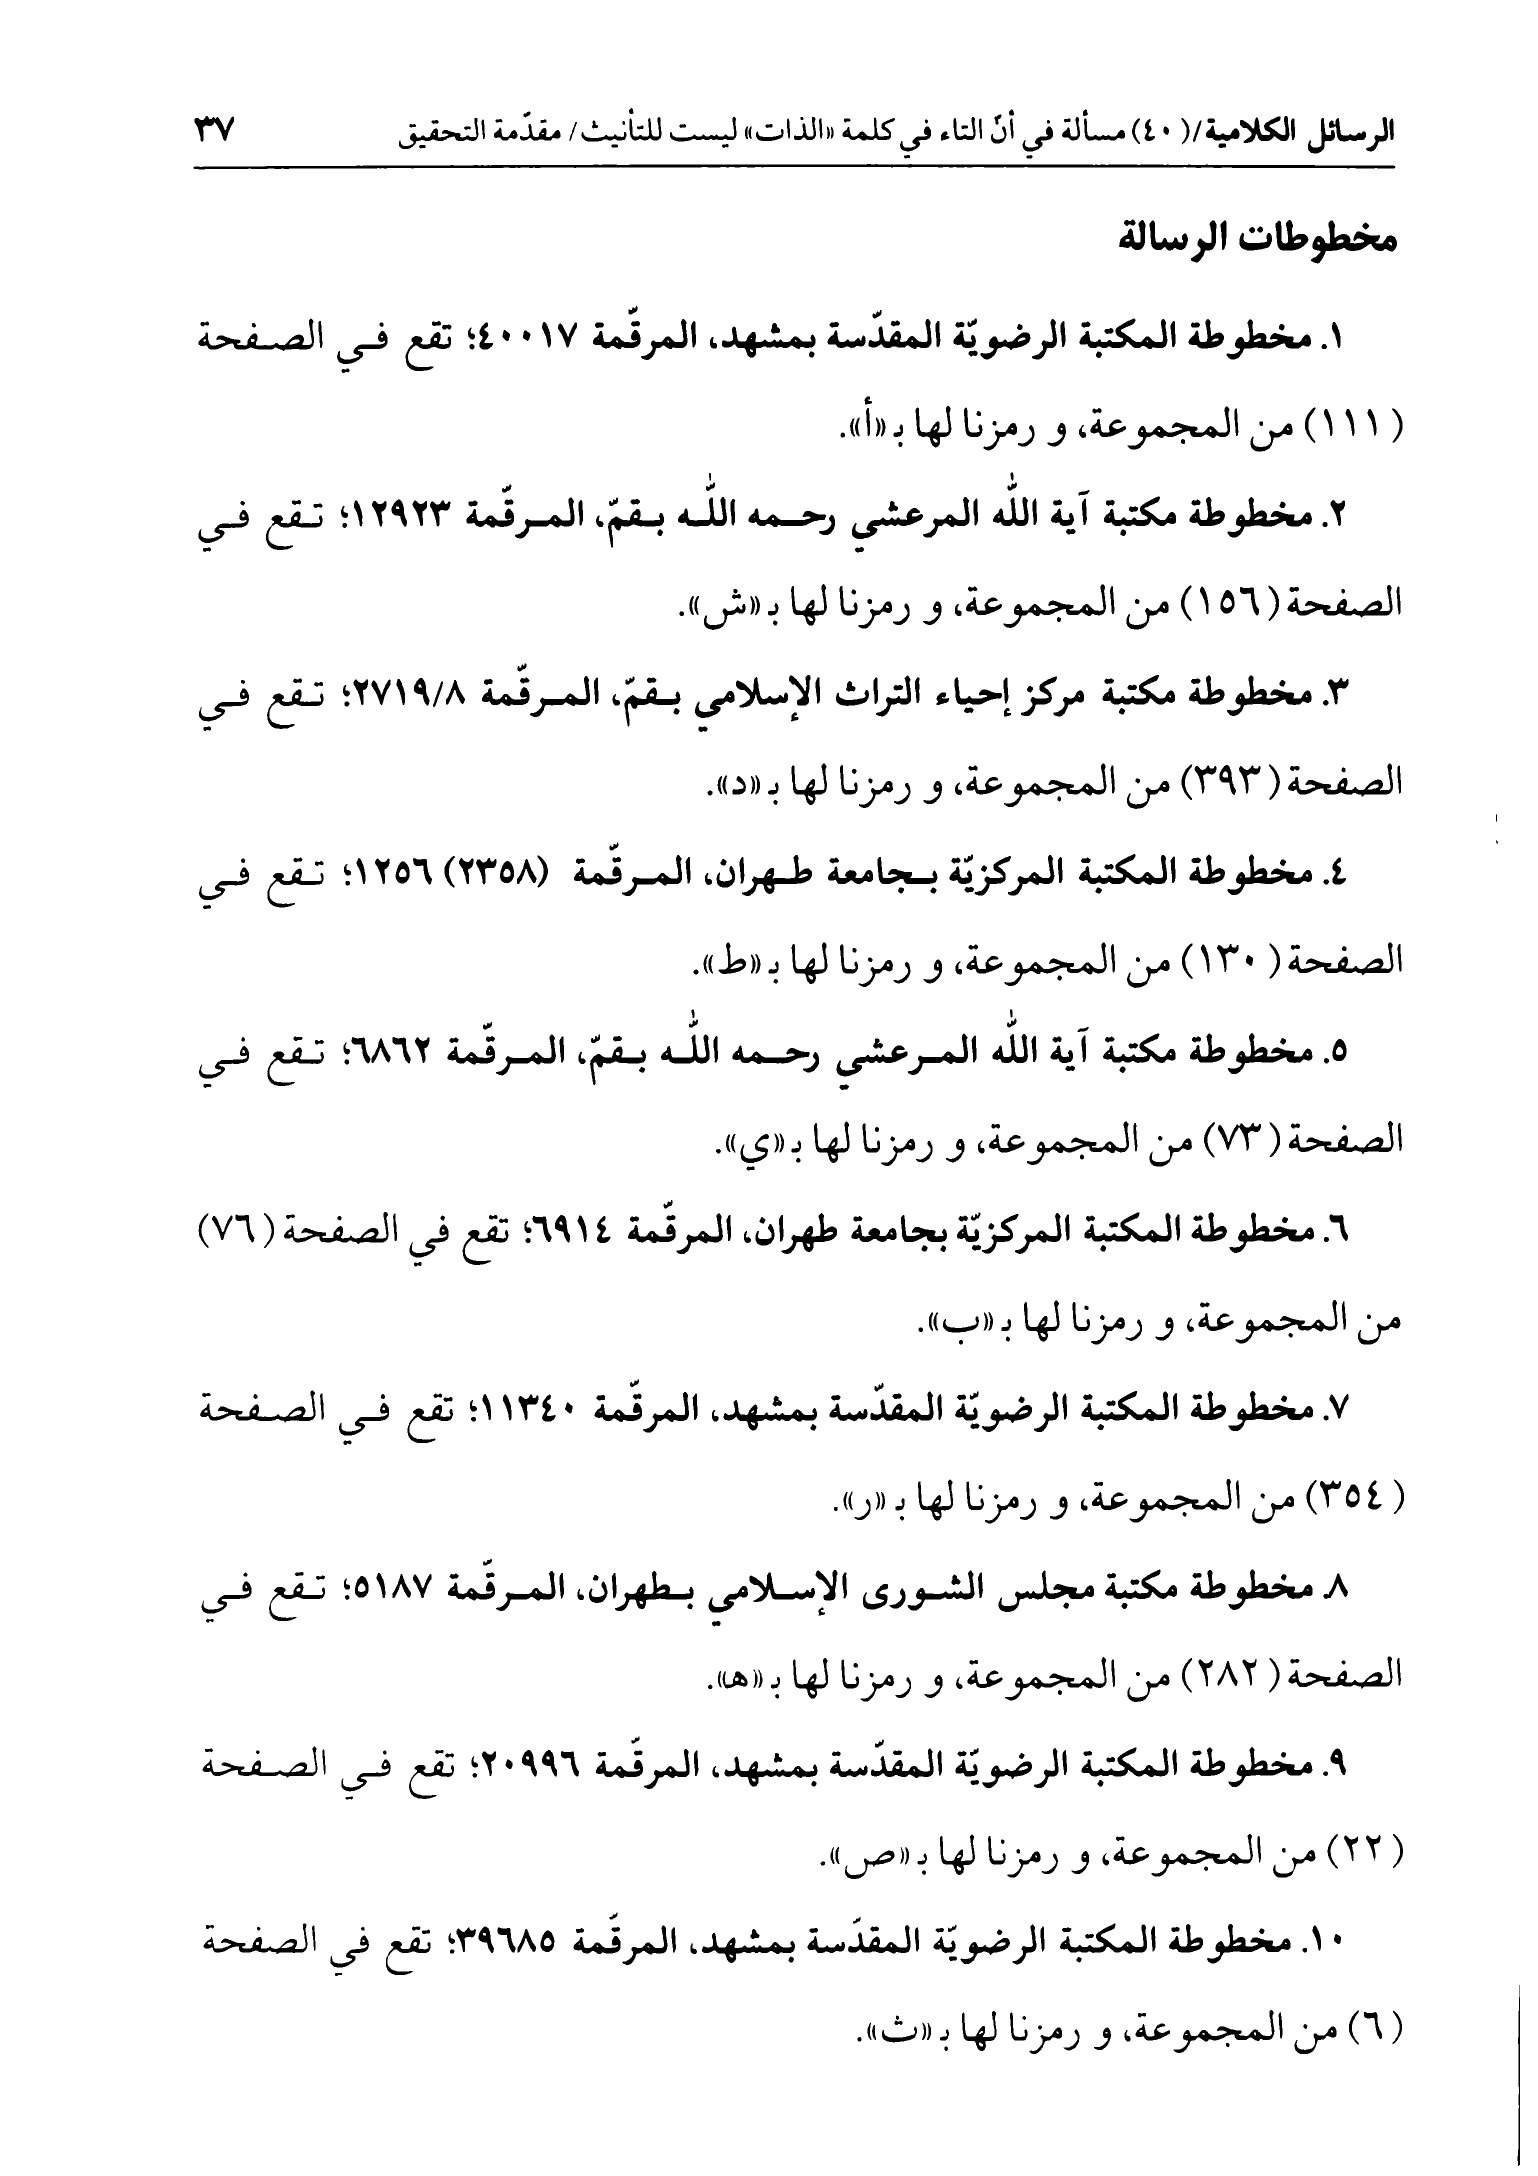 الرسائل الكلامية/(٤٠) مسألة في أنّ التاء في كلمة «الذات» ليست للتأنيث/ مقدّمة التحقيق ٣٧
مخطوطات الرسالة
١. مخطوطة المكتبة الرضويّة المقدّسة بمشهد، المرقّمة ٤٠٠١٧؛ تقع في الصفحة
(١١١) من المجموعة، و رمزنا لها بـ «أ».
٢. مخطوطة مكتبة آية الله المرعشي رحمه الله بقمّ، المرقّمة ١٢٩٢٣؛ تقع في
الصفحة (١٥٦) من المجموعة، و رمزنا لها بـ «ش».
٣. مخطوطة مكتبة مركز إحياء التراث الإسلامي بقمّ، المرقّمة ٢٧١٩/٨؛ تقع في
الصفحة (٣٩٣) من المجموعة، و رمزنا لها بـ «د».
٤. مخطوطة المكتبة المركزيّة بجامعة طهران، المرقّمة (٢٣٥٨) ١٢٥٦؛ تقع في
الصفحة (١٣٠) من المجموعة، و رمزنا لها بـ «ط».
٥. مخطوطة مكتبة آية الله المرعشي رحمه الله بقمّ، المرقّمة ٦٨٦٢؛ تقع في
الصفحة (٧٣) من المجموعة، و رمزنا لها بـ «ي».
٦. مخطوطة المكتبة المركزيّة بجامعة طهران، المرقّمة ٦٩١٤؛ تقع في الصفحة (٧٦)
من المجموعة، و رمزنا لها بـ «ب».
٧. مخطوطة المكتبة الرضويّة المقدّسة بمشهد، المرقّمة ١١٣٤٠؛ تقع في الصفحة
(٣٥٤) من المجموعة، و رمزنا لها بـ «ر».
٨. مخطوطة مكتبة مجلس الشورى الإسلامي بطهران، المرقّمة ٥١٨٧؛ تقع في
الصفحة (٢٨٢) من المجموعة، و رمزنا لها بـ «هـ».
٩. مخطوطة المكتبة الرضويّة المقدّسة بمشهد، المرقّمة ٢٠٩٩٦؛ تقع في الصفحة
(٢٢) من المجموعة، و رمزنا لها بـ «ص».
١٠. مخطوطة المكتبة الرضويّة المقدّسة بمشهد، المرقّمة ٣٩٦٨٥؛ تقع في الصفحة
(٦) من المجموعة، و رمزنا لها بـ «ث».